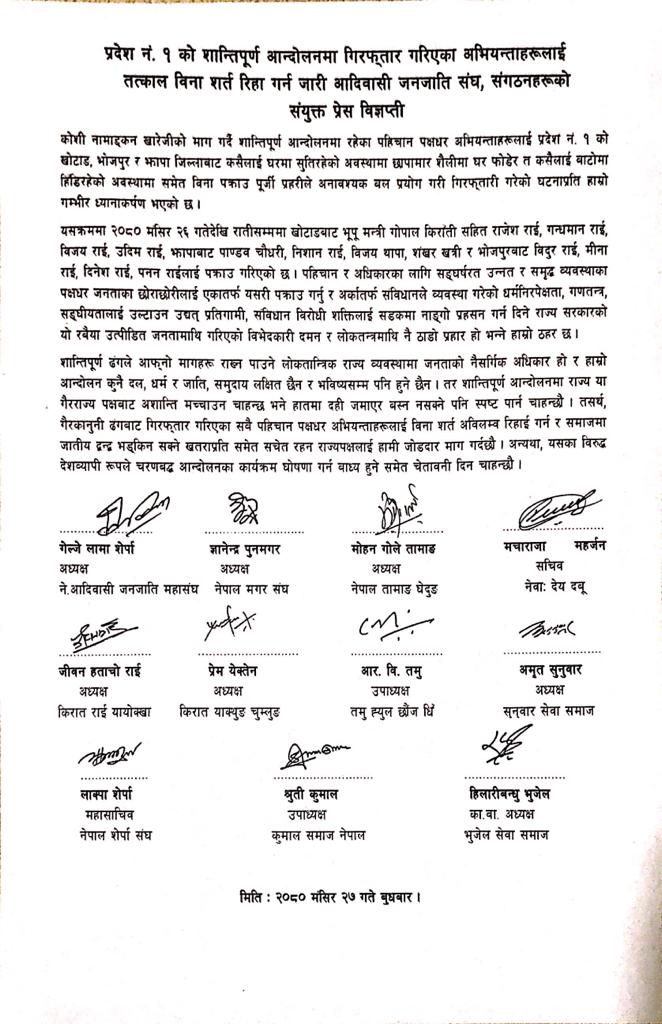 प्रदेश नं. १ को शान्तिपूर्ण आन्दोलनमा गिरफ्तार गरिएका अभियन्ताहरूलाई
तत्काल विना शर्त रिहा गर्न जारी आदिवासी जनजाति संघ, संगठनहरूको
संयुक्त प्रेस विज्ञप्ती
कोशी नामाङ्कन खारेजीको माग गर्दै शान्तिपूर्ण आन्दोलनमा रहेका पहिचान पक्षधर अभियन्ताहरूलाई प्रदेश नं. १ को
खोटाङ, भोजपुर र झापा जिल्लाबाट कसैलाई घरमा सुतिरहेको अवस्थामा छापामार शैलीमा घर फोडेर त कसैलाई बाटोमा
हिँडिरहेको अवस्थामा समेत विना पक्राउ पूर्जी प्रहरीले अनावश्यक बल प्रयोग गरी गिरफ्तारी गरेको घटनाप्रति हाम्रो
गम्भीर ध्यानाकर्षण भएको छ ।
यसक्रममा २०८० मंसिर २६ गतेदेखि रातीसम्ममा खोटाङबाट भूपू मन्त्री गोपाल किरांती सहित राजेश राई, गन्धमान राई,
विजय राई, उदिम राई, झापाबाट पाण्डव चौधरी, निशान राई, विजय थापा, शंखर खत्री र भोजपुरबाट विदुर राई, मीना
राई, दिनेश राई, पनन राईलाई पक्राउ गरिएको छ । पहिचान र अधिकारका लागि सङ्घर्षरत उन्नत र समृद्ध व्यवस्थाका
पक्षधर जनताका छोराछोरीलाई एकातर्फ यसरी पक्राउ गर्नु र अर्कातर्फ संविधानले व्यवस्था गरेको धर्मनिरपेक्षता, गणतन्त्र,
सङ्घीयतालाई उल्टाउन उद्यत् प्रतिगामी, संविधान विरोधी शक्तिलाई सडकमा नाङ्गो प्रहसन गर्न दिने राज्य सरकारको
यो रवैया उत्पीडित जनतामाथि गरिएको विभेदकारी दमन र लोकतन्त्रमाथि नै ठाडो प्रहार हो भन्ने हाम्रो ठहर छ ।
शान्तिपूर्ण ढंगले आफ्नो मागहरू राख्न पाउने लोकतान्त्रिक राज्य व्यवस्थामा जनताको नैसर्गिक अधिकार हो र हाम्रो
आन्दोलन कुनै दल, धर्म र जाति, समुदाय लक्षित छैन र भविष्यसम्म पनि हुने छैन । तर शान्तिपूर्ण आन्दोलनमा राज्य या
गैरराज्य पक्षबाट अशान्ति मच्चाउन चाहन्छ भने हातमा दही जमाएर बस्न नसक्ने पनि स्पष्ट पार्न चाहन्छौ । तसर्थ,
गैरकानुनी ढंगबाट गिरफ्तार गरिएका सवै पहिचान पक्षधर अभियन्ताहरूलाई विना शर्त अविलम्व रिहाई गर्न र समाजमा
जातीय द्वन्द्व भड्किन सक्ने खतराप्रति समेत सचेत रहन राज्यपक्षलाई हामी जोडदार माग गर्दछौ । अन्यथा, यसका विरुद्ध
देशव्यापी रूपले चरणबद्ध आन्दोलनका कार्यक्रम घोषणा गर्न बाध्य हुने समेत चेतावनी दिन चाहन्छौ ।
गेल्जे लामा शेर्पा ज्ञानेन्द्र पुनमगर मोहन गोले तामाङ मचाराजा महर्जन
अध्यक्ष अध्यक्ष अध्यक्ष सचिव
ने.आदिवासी जनजाति महासंघ नेपाल मगर संघ नेपाल तामाङ घेदुङ नेवा: देय दबू
जीवन हताचो राई प्रेम येक्तेन आर. वि. तमु अमृत सुनुवार
अध्यक्ष अध्यक्ष उपाध्यक्ष अध्यक्ष
किरात राई यायोक्खा किरात याक्थुङ चुम्लुङ तमु ह्युल छोंज धिं सुनुवार सेवा समाज
लाक्पा शेर्पा श्रुती कुमाल हिलारीबन्धु भुजेल
महासाचिव उपाध्यक्ष का.वा. अध्यक्ष
नेपाल शेर्पा संघ कुमाल समाज नेपाल भुजेल सेवा समाज
मिति : २०८० मंसिर २७ गते बुधबार ।